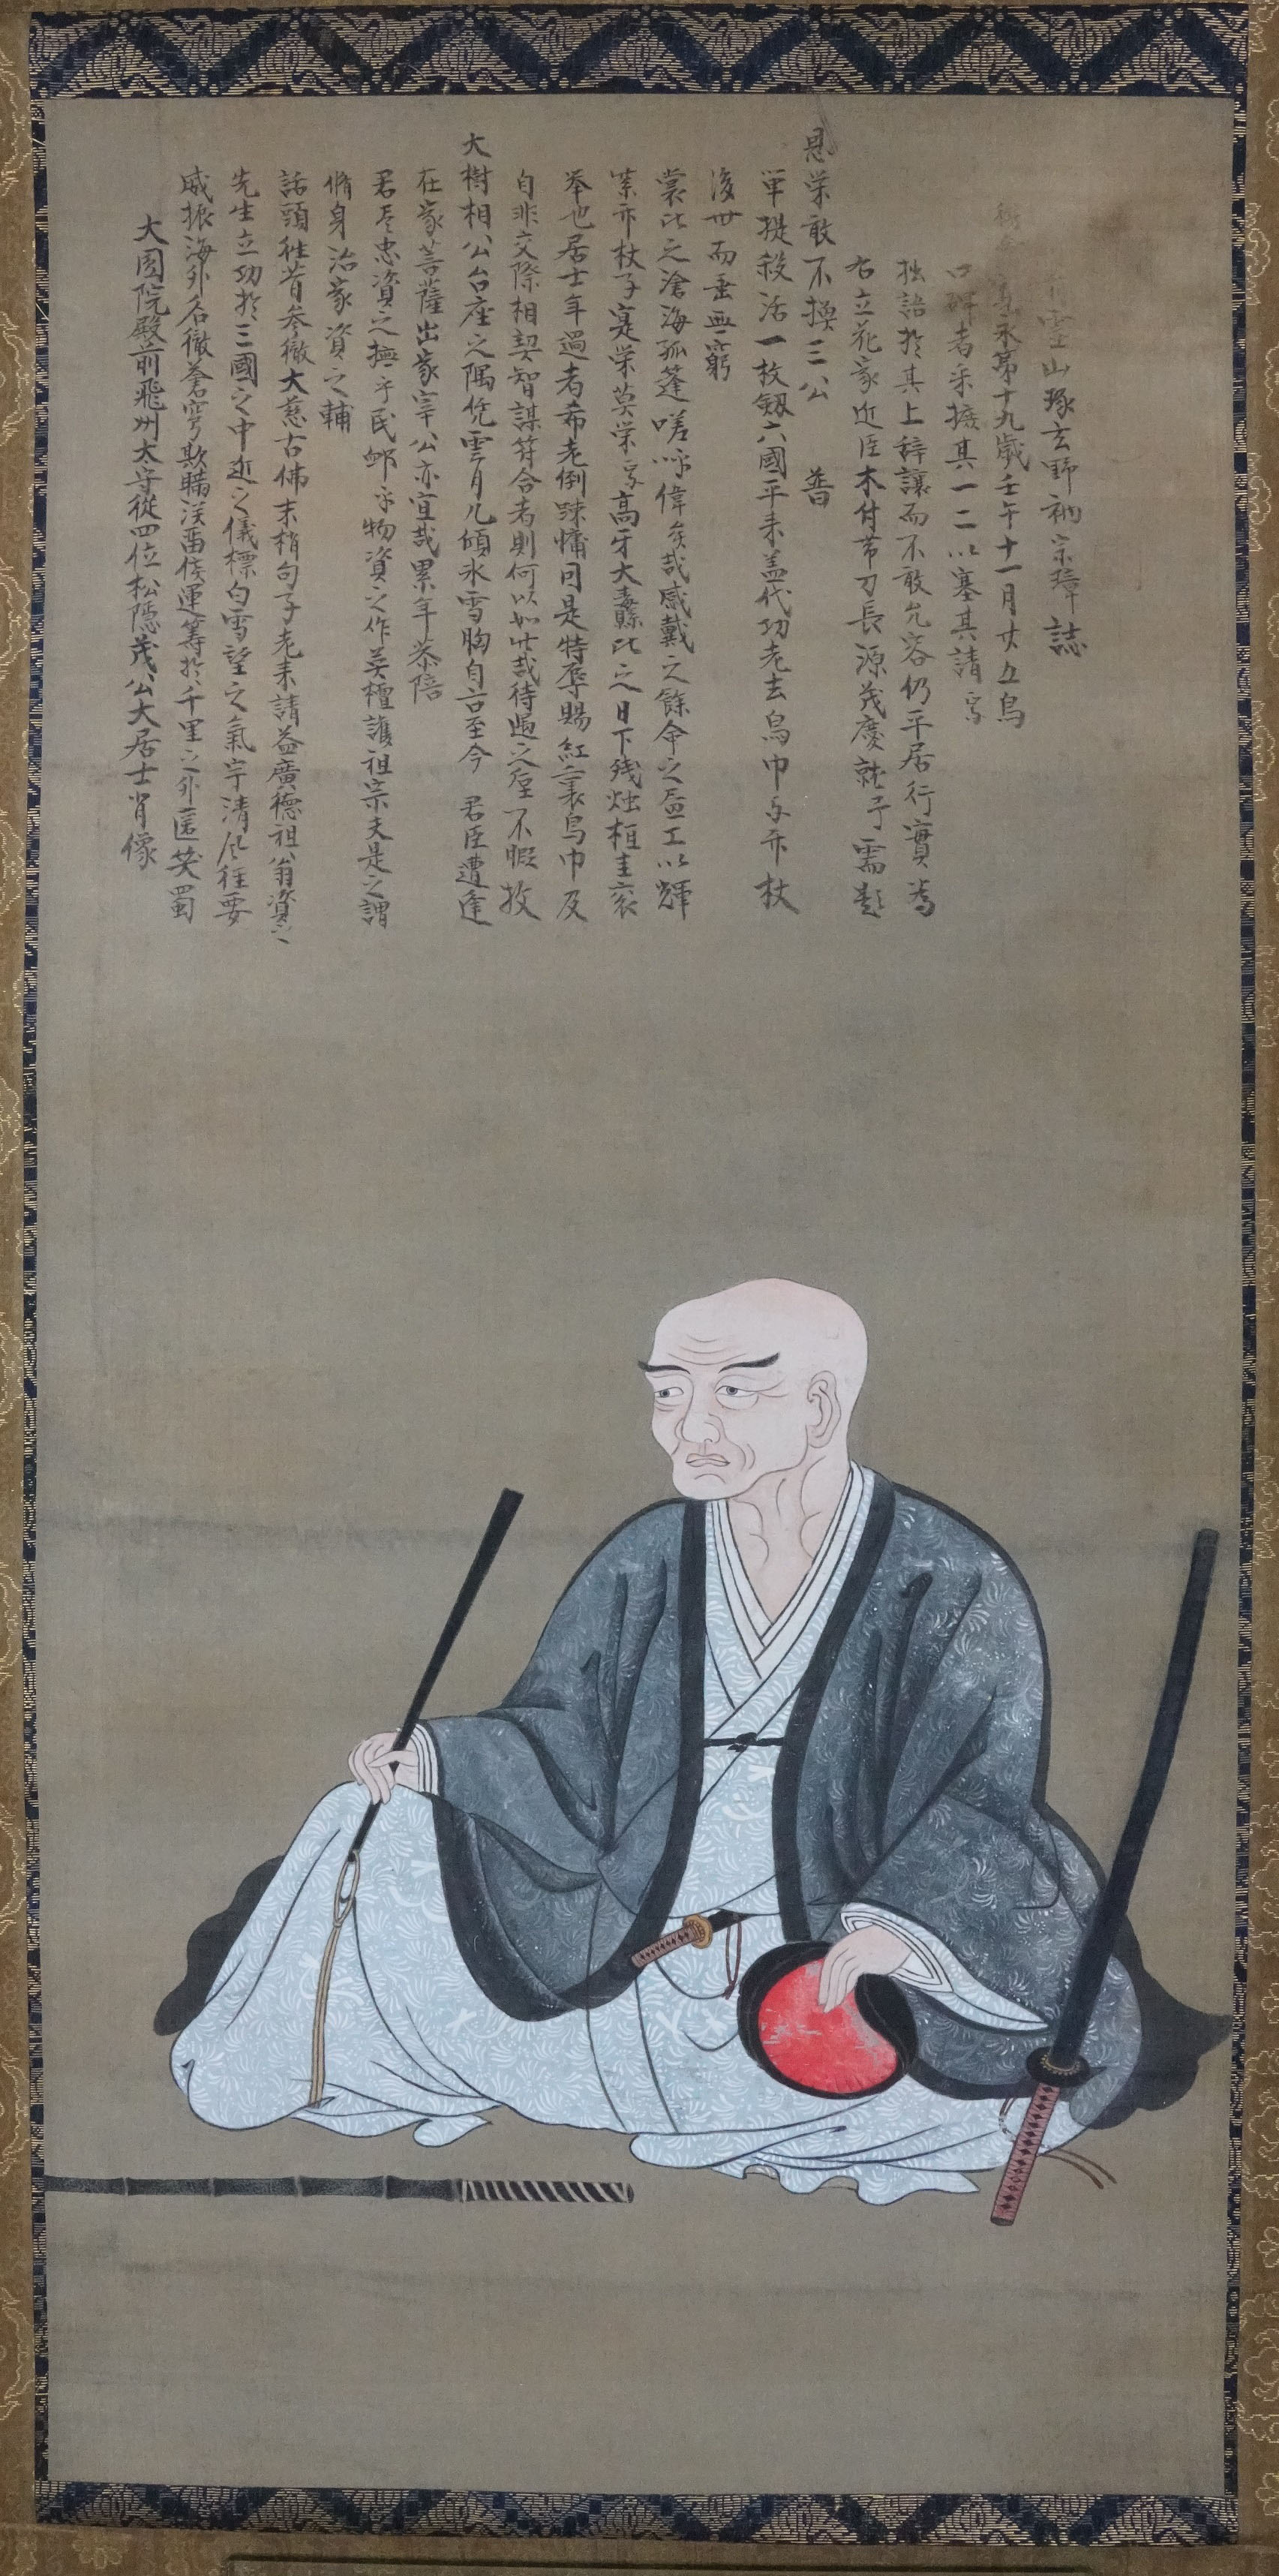 大圓院殿前飛州太守從四位松隱茂公大居士肖像
威振海外名徹蒼穹欺瞞漢畨侯運籌於千里之外匿笑蜀
先生立功於三國之中近之儀標白雪望之氣宇清風往要
話頭往昔参徹大慈古佛末梢句子老来請益廣德祖翁資之
脩身治家資之輔
君尽忠資之撫乎民衅乎物資之作英檀護祖宗夫是之謂
在家菩薩出家宰公亦宜哉累年恭陪
大樹相公台座之隅凭雲月几傾氷雪胸自古至今 君臣遭逢
自非交際相契智謀符合者則何以如此哉待遇之屋不暇枚
举也居士年過者希老倒疎慵因是特辱賜紅裏烏巾及
紫竹杖子寔栄莫栄焉高牙大纛比之日下残燭桓圭衮
裳比之滄海孤篷嗟呼偉矣哉感戴之餘命之画工以輝
後世而垂無窮
単提殺活一枚釼六國平来盖代功老去烏巾与竹杖
恩栄敢不換三公 普
右立花家近臣木付帯刀長源茂慶就予需題
拙語於其上辞讓而不敢允容仍平居行實為
口碑者采摭其一二以塞其請焉
寛永第十九歳壬午十一月廿五烏
雲山琢玄野衲宗璋誌